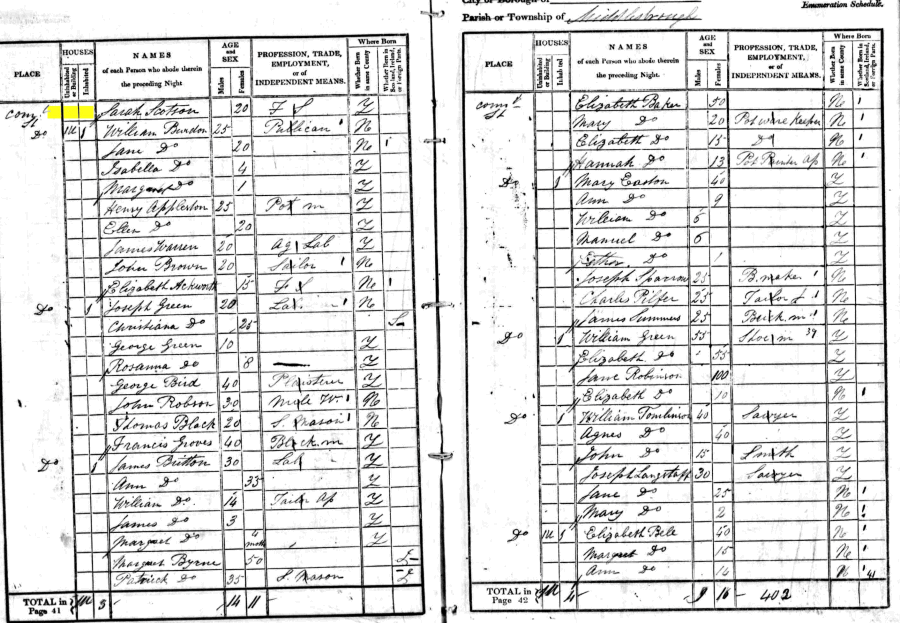 City or Borough of
Parish or Township of Middlesbrough
Enumeration Schedule.
PLACE
HOUSES
Uninhabited or Building
Inhabited
NAMES
of each Person who abode therein
the preceding Night.
AGE
and
SEX
Males
Females
PROFESSION, TRADE,
EMPLOYMENT,
or of
INDEPENDENT MEANS.
Where Born
Whether Born in same County
Whether Born in Scotland, Ireland, or Foreign Parts.
Sarah 20 F S Y
Do 1U 1 William Burdon 25 Publican N
Jane Do 20 N
Isabella Do 4 Y
Margaret Do 1 Y
Henry Appleton 25 Pot m Y
Ellen Do 20 Y
James Warren 20 Ag Lab Y
John Brown 20 Sailor N
Elizabeth Ackworth 15 F S N
Do 1 Joseph Green 20 Lab N
Christiana Do 25 S
George Green 10 Y
Rosanna Do 8 Y
George Bird 40 Plaisterer Y
John Robson 30 N
Thomas Black 20 S. Mason N
Francis Groves 40 Black m Y
Do 1 James Britton 30 Lab Y
Ann Do 33 Y
William Do 14 Tailor Ap Y
James Do 3 Y
Margret Do 4 mths Y
Margret Byrne 50 I
Patrick Do 35 S. Mason I
TOTAL in Page 41 1U 3 14 11
PLACE
HOUSES
Uninhabited or Building
Inhabited
NAMES
of each Person who abode therein
the preceding Night.
AGE
and
SEX
Males
Females
PROFESSION, TRADE,
EMPLOYMENT,
or of
INDEPENDENT MEANS.
Where Born
Whether Born in same County
Whether Born in Scotland, Ireland, or Foreign Parts.
St Elizabeth Baker 50 N
Mary Do 20 Potware Keeper N
Elizabeth Do 15 Do N
Hannah Do 13 Pot Printer Ap N
Do 1 Mary Easton 40 Y
Ann Do 9 Y
William Do 6 Y
Manuel Do 6 Y
Do 1 Y
Joseph Sparrow 25 B. maker N
Charles 25 Tailor N
James Summers 25 Brick m N
Do 1 William Green 55 Shoe m 39 Y
Elizabeth Do 55 Y
Jane Robinson 100 Y
Elizabeth Do 10 N
Do 1 William Tomlinson 40 Sawyer Y
Agnes Do 40 Y
John Do 15 Smith Y
Joseph Langstaff 30 Sawyer Y
Jane Do 25 N
Mary Do 2 N
Do 1U 1 Elizabeth Bele 40 N
Margret Do 15 N
Ann Do 14 N 41
TOTAL in Page 42 1U 4 9 16 402